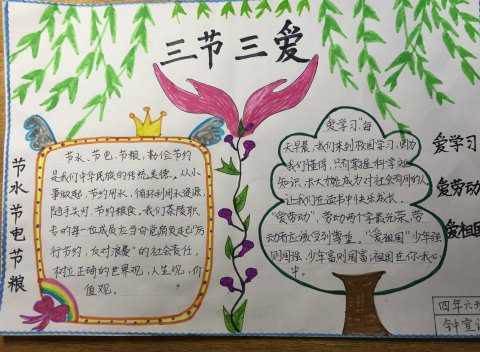 三节三爱
节水节电节粮
节水、节电、节粮，勤俭节约
是我们中华民族的传统美德。从小
事做起，节约用水，循环利用水资源
随手关灯，节约粮食，我们茶陵职
专的每一位成员应当自觉肩负起"厉
行节约，反对浪费"的社会责任，
树立正确的世界观，人生观，价
值观。
"爱学习"每
天早晨，我们来到校园学习，因为
我们懂得，只有掌握科学文
知识，
才能成为对社会有用的人
让我们在
中快乐成长。
"爱劳动"，劳动
最光荣，劳
动
应该受到尊重。"爱祖国"少年强
则国强，少年富则国富，祖国在你我心
中。
爱学习
爱劳动
爱祖国
四年六
钟宣